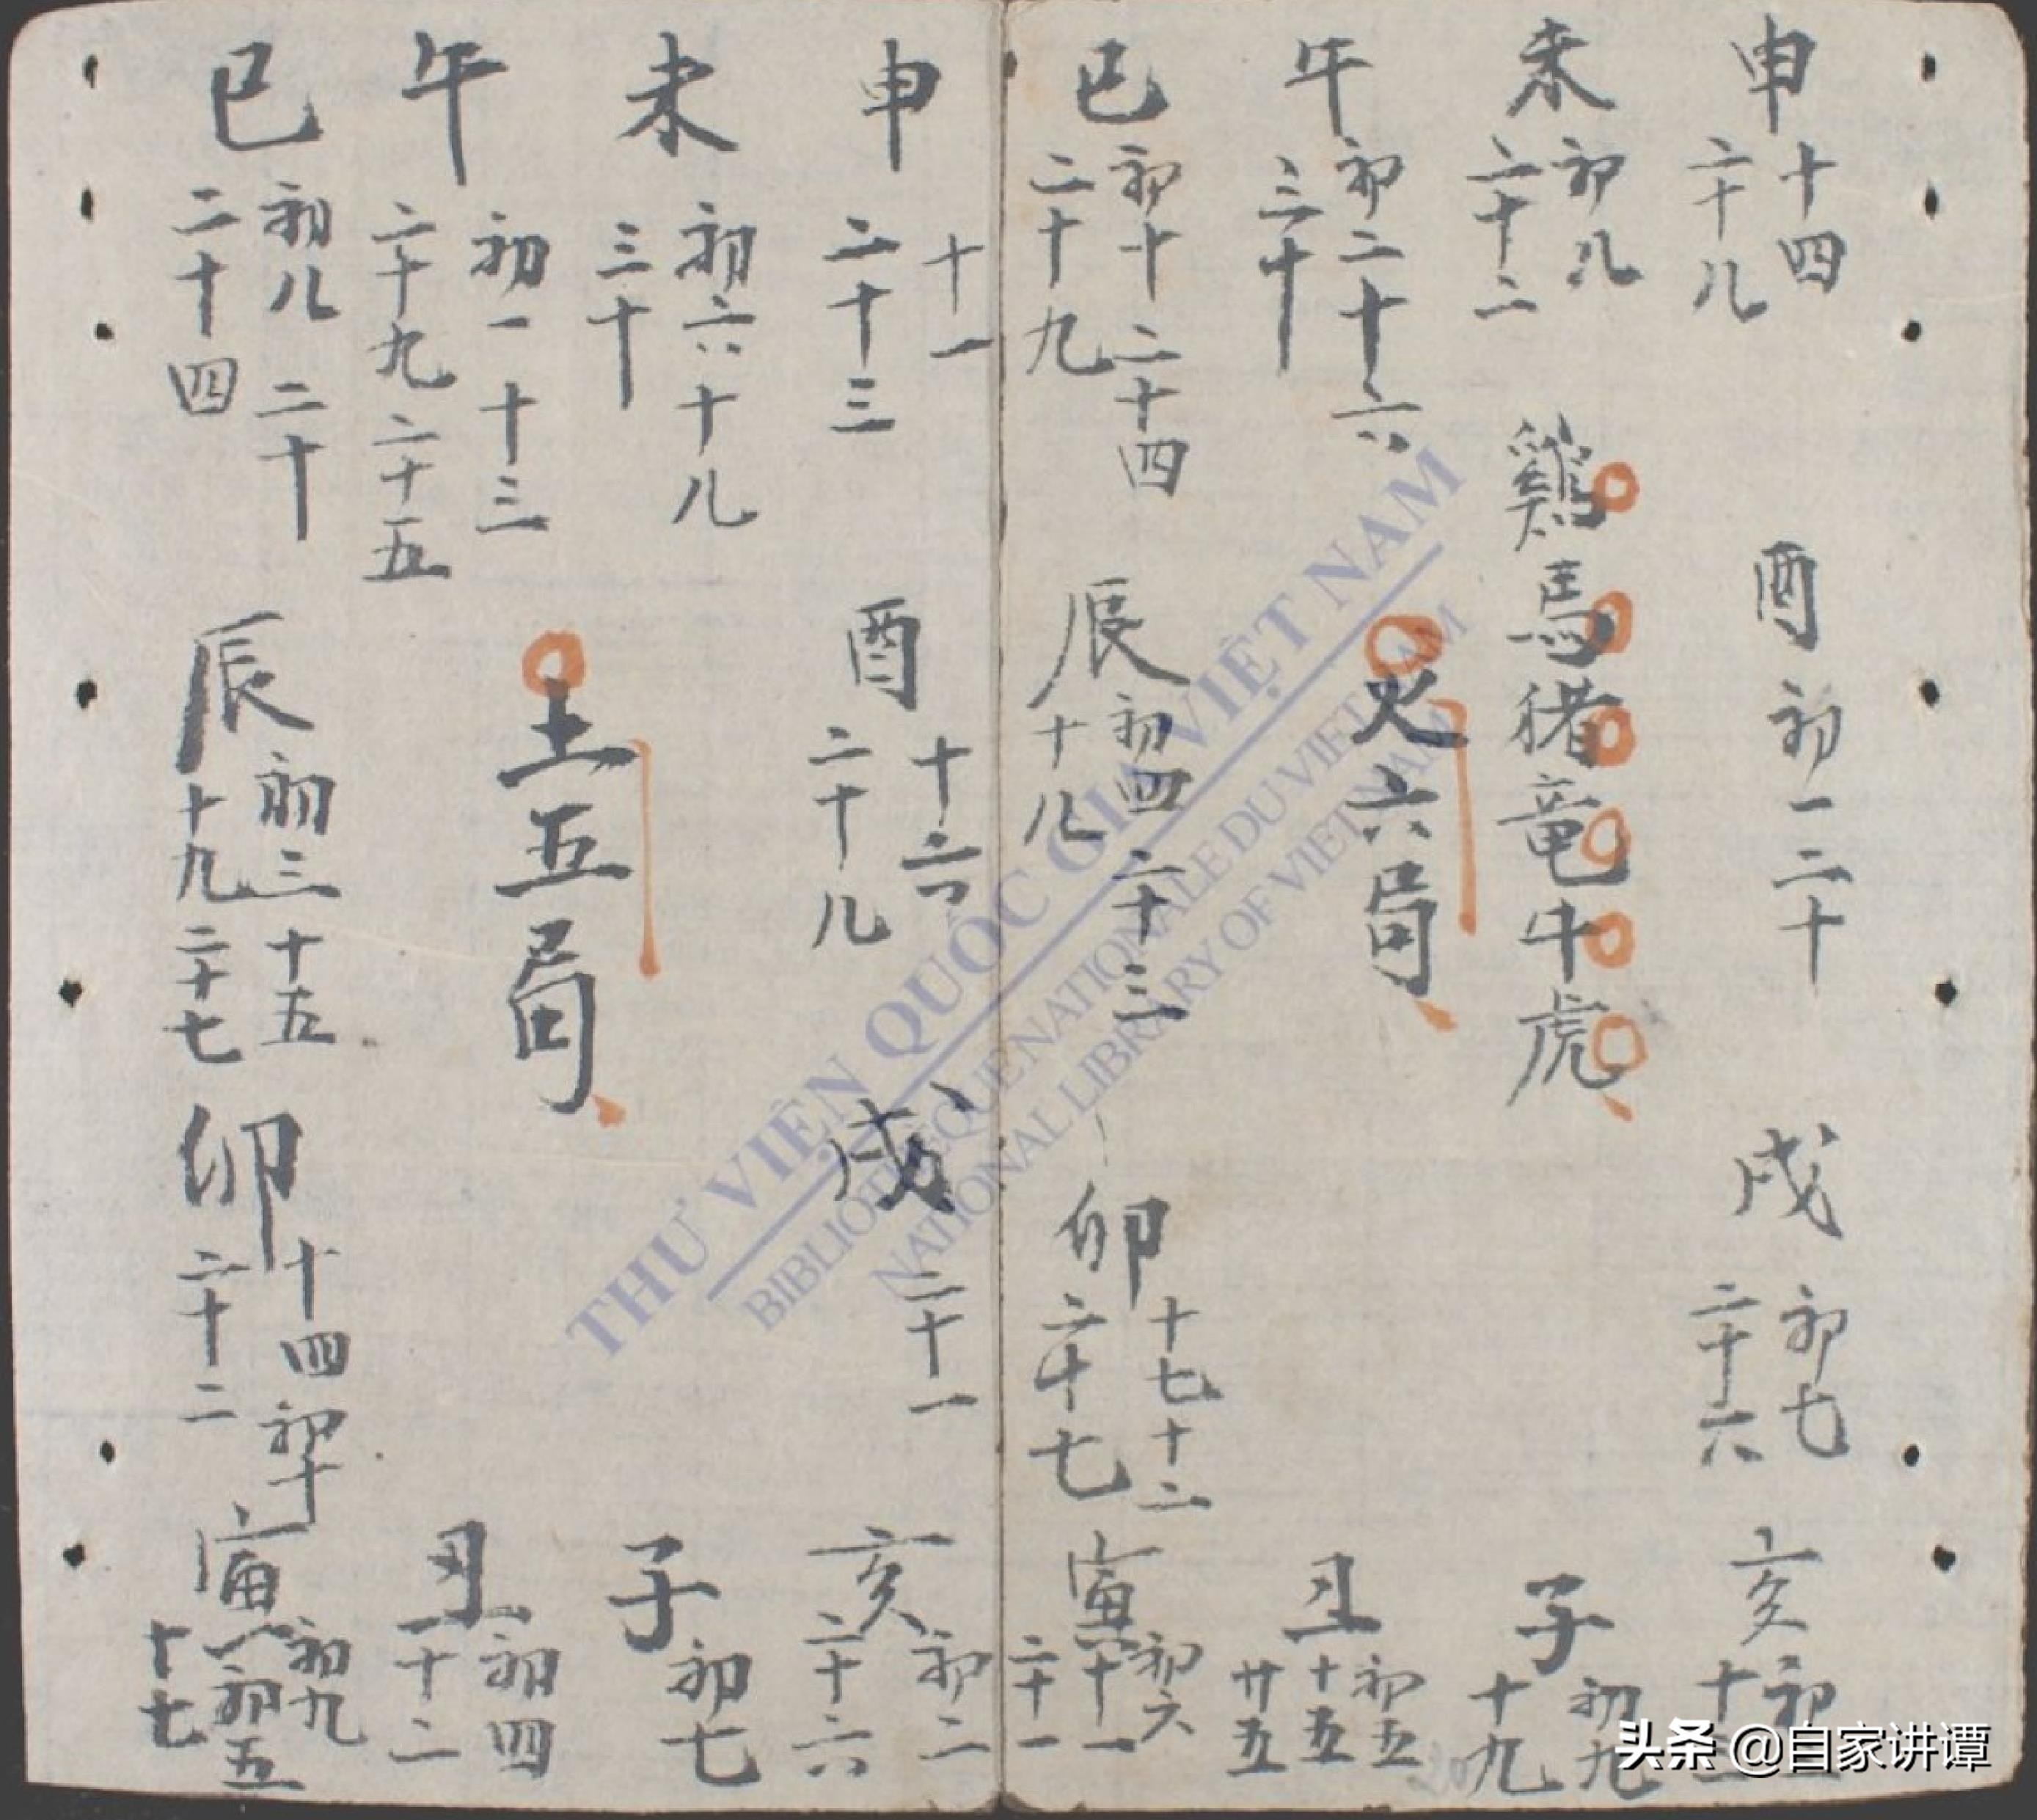 申
十四
二十八
未
初八
二十二
午
初二十六
三十
巳
初十二十四
二十九
酉
初一二十
雞馬猪竜牛虎
火六局
辰
初四二十三
十八
戌
初七
二十六
卯
十七十二
二十七
亥
子
初九
十九
丑
初五
十五
廿五
寅
初六
十一
二十一
申
十一
二十三
未
初六十八
三十
午
初一十三
二十九二十五
巳
初八二十
二十四
酉
十六
二十八
土五局
辰
初三十五
十九二十七
戌
二十一
卯
十四初十
二十二
亥
初二
二十六
子
初七
丑
初四
十二
寅
初九
初五
十七
THƯ VIỆN QUỐC GIA VIỆT NAM
BIBLIOTHEQUE NATIONALE DU VIET NAM
NATIONAL LIBRARY OF VIET NAM
头条 @自家讲谭